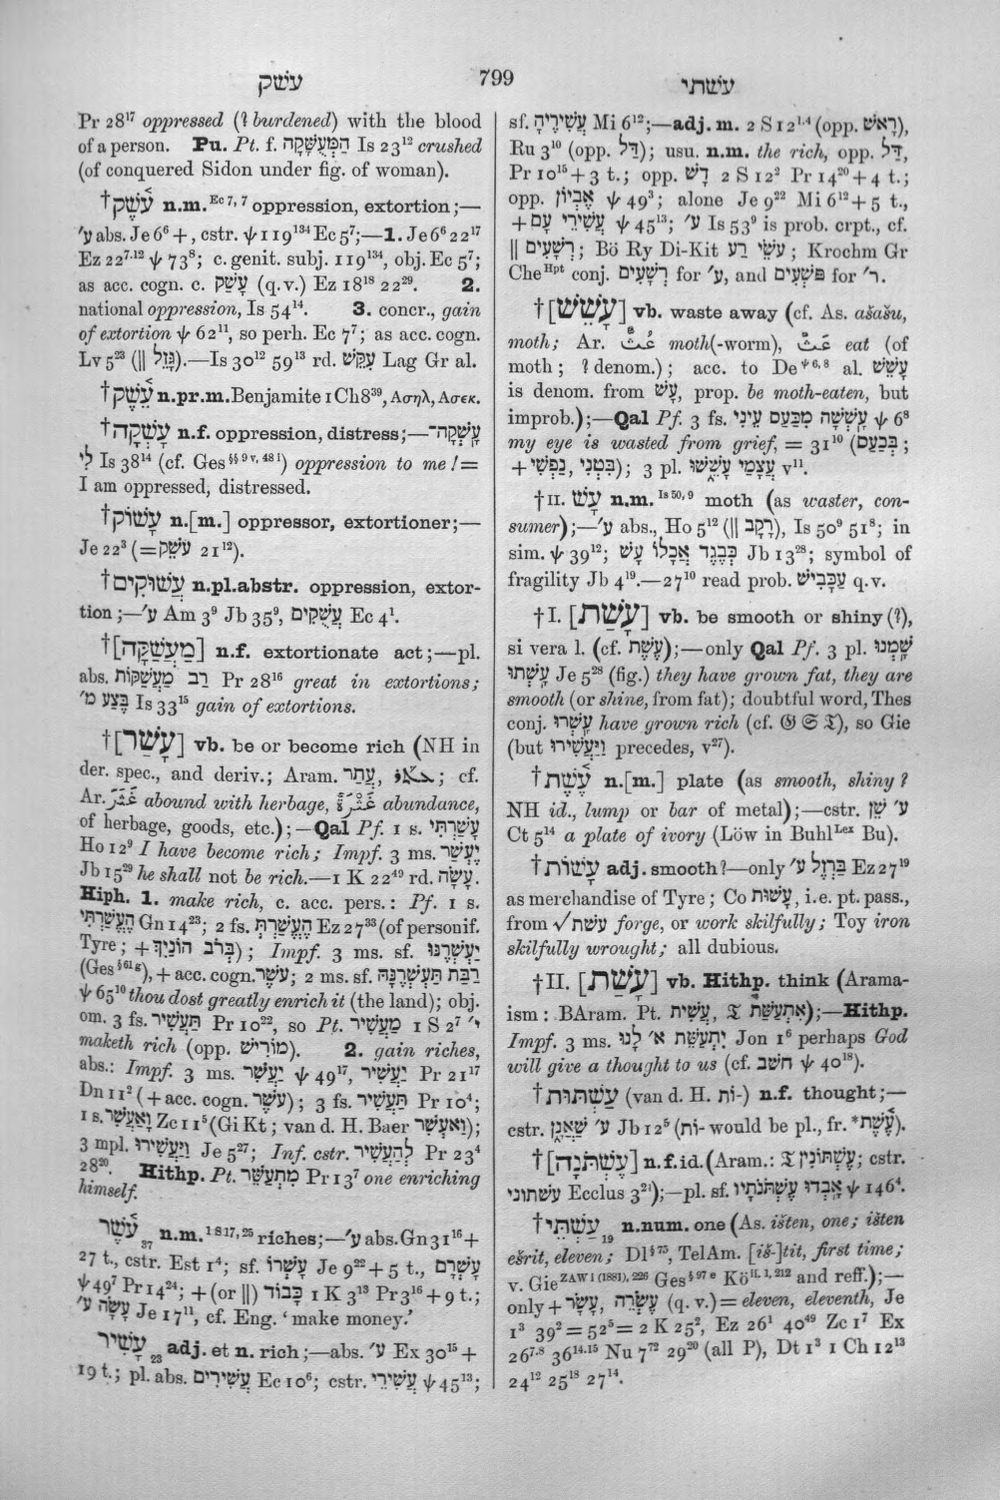 עשׁק
799
עשׁתי
Pr 28¹⁷ oppressed (? burdened) with the blood
of a person. Pu. Pt. f. הַמְּעֻשָּׁקָה Is 23¹² crushed
(of conquered Sidon under fig. of woman).
†עֹ֫שֶׁק n.m. Ec 7, 7 oppression, extortion;—
ע׳ abs. Je 6⁶ +, cstr. ψ 119¹³⁴ Ec 5⁷;—1. Je 6⁶ 22¹⁷
Ez 22⁷·¹² ψ 73⁸; c. genit. subj. 119¹³⁴, obj. Ec 5⁷;
as acc. cogn. c. עָשַׁק (q.v.) Ez 18¹⁸ 22²⁹. 2.
national oppression, Is 54¹⁴. 3. concr., gain
of extortion ψ 62¹¹, so perh. Ec 7⁷; as acc. cogn.
Lv 5²³ (|| גָּזֵל).—Is 30¹² 59¹³ rd. עִקֵּשׁ Lag Gr al.
†עֵ֫שֶׁק n.pr.m. Benjamite 1 Ch 8³⁹, Ασηλ, Ασεκ.
†עָשְׁקָה n.f. oppression, distress;—עָֽשְׁקָה־
לִּי Is 38¹⁴ (cf. Ges §§ 9 v, 48 i) oppression to me! =
I am oppressed, distressed.
†עָשׁוֹק n.[m.] oppressor, extortioner;—
Je 22³ (= עוֹשֵׁק 21¹²).
†עֲשׁוּקִים n.pl.abstr. oppression, extor-
tion;—ע׳ Am 3⁹ Jb 35⁹, עֲשֻׁקִים Ec 4¹.
†[מַעֲשַׁקָּה] n.f. extortionate act;—pl.
abs. רַב מַעֲשַׁקּוֹת Pr 28¹⁶ great in extortions;
בֶּצַע מ׳ Is 33¹⁵ gain of extortions.
†[עָשַׁר] vb. be or become rich (NH in
der. spec., and deriv.; Aram. עֲתַר, ܥܬܪ; cf.
Ar. غَثَرَ abound with herbage, غَثْرَةٌ abundance,
of herbage, goods, etc.);—Qal Pf. 1 s. עָשַׁרְתִּי
Ho 12⁹ I have become rich; Impf. 3 ms. יֶעְשַׁר
Jb 15²⁹ he shall not be rich.—1 K 22⁴⁹ rd. עָשָׂה.
Hiph. 1. make rich, c. acc. pers.: Pf. 1 s.
הֶעֱשַׁרְתִּי Gn 14²³; 2 fs. הֶעֱשַׁרְתְּ Ez 27³³ (of personif.
Tyre; + בְּרֹב הוֹנַיִךְ); Impf. 3 ms. sf. יַעְשְׁרֶנּוּ
(Ges § 61 g), + acc. cogn. עֹשֶׁר; 2 ms. sf. רַבַּת תַּעְשְׁרֶנָּה
ψ 65¹⁰ thou dost greatly enrich it (the land); obj.
om. 3 fs. תַּעֲשִׁיר Pr 10²², so Pt. מַעֲשִׁיר 1 S 2⁷ י׳
maketh rich (opp. מוֹרִישׁ). 2. gain riches,
abs.: Impf. 3 ms. יַעֲשִׁר ψ 49¹⁷, יַעֲשִׁיר Pr 21¹⁷
Dn 11² (+ acc. cogn. עֹשֶׁר); 3 fs. תַּעֲשִׁיר Pr 10⁴;
1 s. וַאעְשִׁר Zc 11⁵ (Gi Kt; van d. H. Baer וַאעְשִׁר);
3 mpl. וַיַּעֲשִׁירוּ Je 5²⁷; Inf. cstr. לְהַעֲשִׁיר Pr 23⁴
28²⁰. Hithp. Pt. מִתְעַשֵּׁר Pr 13⁷ one enriching
himself.
עֹ֫שֶׁר ₃₇ n.m. 1 S 17, 25 riches;—ע׳ abs. Gn 31¹⁶ +
27 t., cstr. Est 1⁴; sf. עָשְׁרוֹ Je 9²² + 5 t., עָשְׁרָם
ψ 49⁷ Pr 14²⁴; + (or ||) כָּבוֹד 1 K 3¹³ Pr 3¹⁶ + 9 t.;
עָשָׂה ע׳ Je 17¹¹, cf. Eng. ‘make money.’
עָשִׁיר ₂₃ adj. et n. rich;—abs. ע׳ Ex 30¹⁵ +
19 t.; pl. abs. עֲשִׁירִים Ec 10⁶; cstr. עֲשִׁירֵי ψ 45¹³;
sf. עֲשִׁירֶיהָ Mi 6¹²;—adj. m. 2 S 12¹·⁴ (opp. רָאשׁ),
Ru 3¹⁰ (opp. דַּל); usu. n.m. the rich, opp. דַּל,
Pr 10¹⁵ + 3 t.; opp. רָשׁ 2 S 12² Pr 14²⁰ + 4 t.;
opp. אֶבְיוֹן ψ 49³; alone Je 9²² Mi 6¹² + 5 t.,
+ עֲשִׁירֵי עָם ψ 45¹³; ע׳ Is 53⁹ is prob. crpt., cf.
|| רְשָׁעִים; Bö Ry Di-Kit עֹשֵׂי רַע; Krochm Gr
Che Hpt conj. רְשָׁעִים for ע׳, and פּשְׁעִים for ר׳.
†[עָשֵׁשׁ] vb. waste away (cf. As. ašašu,
moth; Ar. عُثٌّ moth(-worm), عَثَّ eat (of
moth; ? denom.); acc. to De ψ 6, 8 al. עָשֵׁשׁ
is denom. from עָשׁ, prop. be moth-eaten, but
improb.);—Qal Pf. 3 fs. עָֽשְׁשָׁה מִכַּעַם עֵינִי ψ 6⁸
my eye is wasted from grief, = 31¹⁰ (בְּכַעַם;
+ בִּטְנִי, נַפְשִׁי); 3 pl. עֲצָמַי עָשֵׁשׁוּ v¹¹.
†II. עָשׁ n.m. Is 50, 9 moth (as waster, con-
sumer);—ע׳ abs., Ho 5¹² (|| רָקָב), Is 50⁹ 51⁸; in
sim. ψ 39¹²; כְּבֶגֶד אֲכָלוֹ עָשׁ Jb 13²⁸; symbol of
fragility Jb 4¹⁹.—27¹⁰ read prob. עַכָּבִישׁ q.v.
†I. [עָשַׁת] vb. be smooth or shiny (?),
si vera l. (cf. עֶשֶׁת);—only Qal Pf. 3 pl. שָׁמְנוּ
עָֽשְׁתוּ Je 5²⁸ (fig.) they have grown fat, they are
smooth (or shine, from fat); doubtful word, Thes
conj. עָֽשְׁרוּ have grown rich (cf. 𝔊 𝔖 𝔗), so Gie
(but וַיַּעֲשִׁירוּ precedes, v²⁷).
†עֶ֫שֶׁת n.[m.] plate (as smooth, shiny ?
NH id., lump or bar of metal);—cstr. ע׳ שֵׁן
Ct 5¹⁴ a plate of ivory (Löw in Buhl Lex Bu).
†עָשׁוֹת adj. smooth?—only בַּרְזֶל ע׳ Ez 27¹⁹
as merchandise of Tyre; Co עָשׁוּת, i.e. pt. pass.,
from √עשׁת forge, or work skilfully; Toy iron
skilfully wrought; all dubious.
†II. [עָשַׁת] vb. Hithp. think (Arama-
ism: BAram. Pt. עֲשִׁית, 𝔗 אִתְעַשַּׁת);—Hithp.
Impf. 3 ms. יִתְעַשֵּׁת א׳ לָנוּ Jon 1⁶ perhaps God
will give a thought to us (cf. חשׁב ψ 40¹⁸).
†עַשְׁתּוּת (van d. H. ־וֹת) n.f. thought;—
cstr. ע׳ שַׁאֲנָן Jb 12⁵ (־וֹת would be pl., fr. *עֶשֶׁת).
†[עֶשְׁתֹּנָה] n.f. id. (Aram.: 𝔗 עֶשְׁתּוֹנִין; cstr.
עשתוני Ecclus 3²⁴);—pl. sf. אָֽבְדוּ עֶשְׁתֹּנֹתָיו ψ 146⁴.
†עַשְׁתֵּי ₁₉ n.num. one (As. išten, one; išten
ešrit, eleven; Dl § 75, TelAm. [iš-]tit, first time;
v. Gie ZAW i (1881), 226 Ges § 97 e Kö ii. 1, 212 and reff.);—
only + עָשָׂר, עֶשְׂרֵה (q. v.) = eleven, eleventh, Je
1³ 39² = 52⁵ = 2 K 25², Ez 26¹ 40⁴⁹ Zc 1⁷ Ex
26⁷·⁸ 36¹⁴·¹⁵ Nu 7⁷² 29²⁰ (all P), Dt 1³ 1 Ch 12¹³
24¹² 25¹⁸ 27¹⁴.